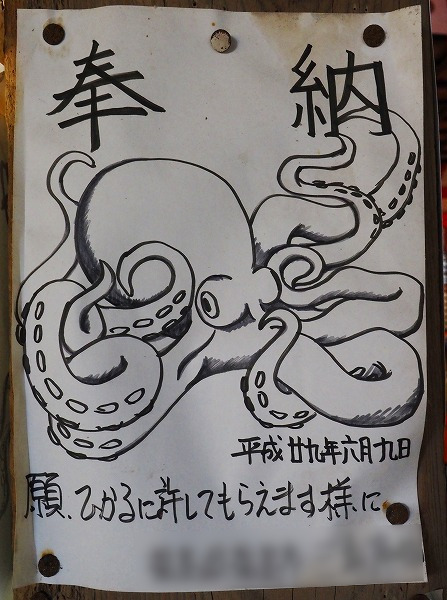 奉納
平成廿九年六月九日
願、ひかるに許してもらえます様、に